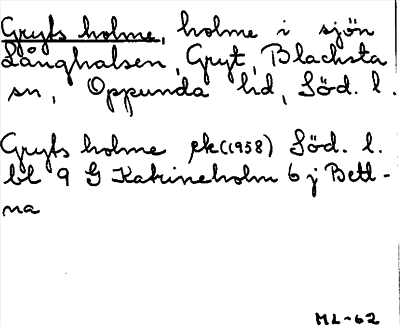 Gryts holme, holme i sjön
Långhalsen, Gryt, Blacksta
sn, Oppunda hd, Söd. l.
Gryts holme ek (1958) Söd. l.
bl 9 G Katrineholm 6 j Bettl-
na
ML-62